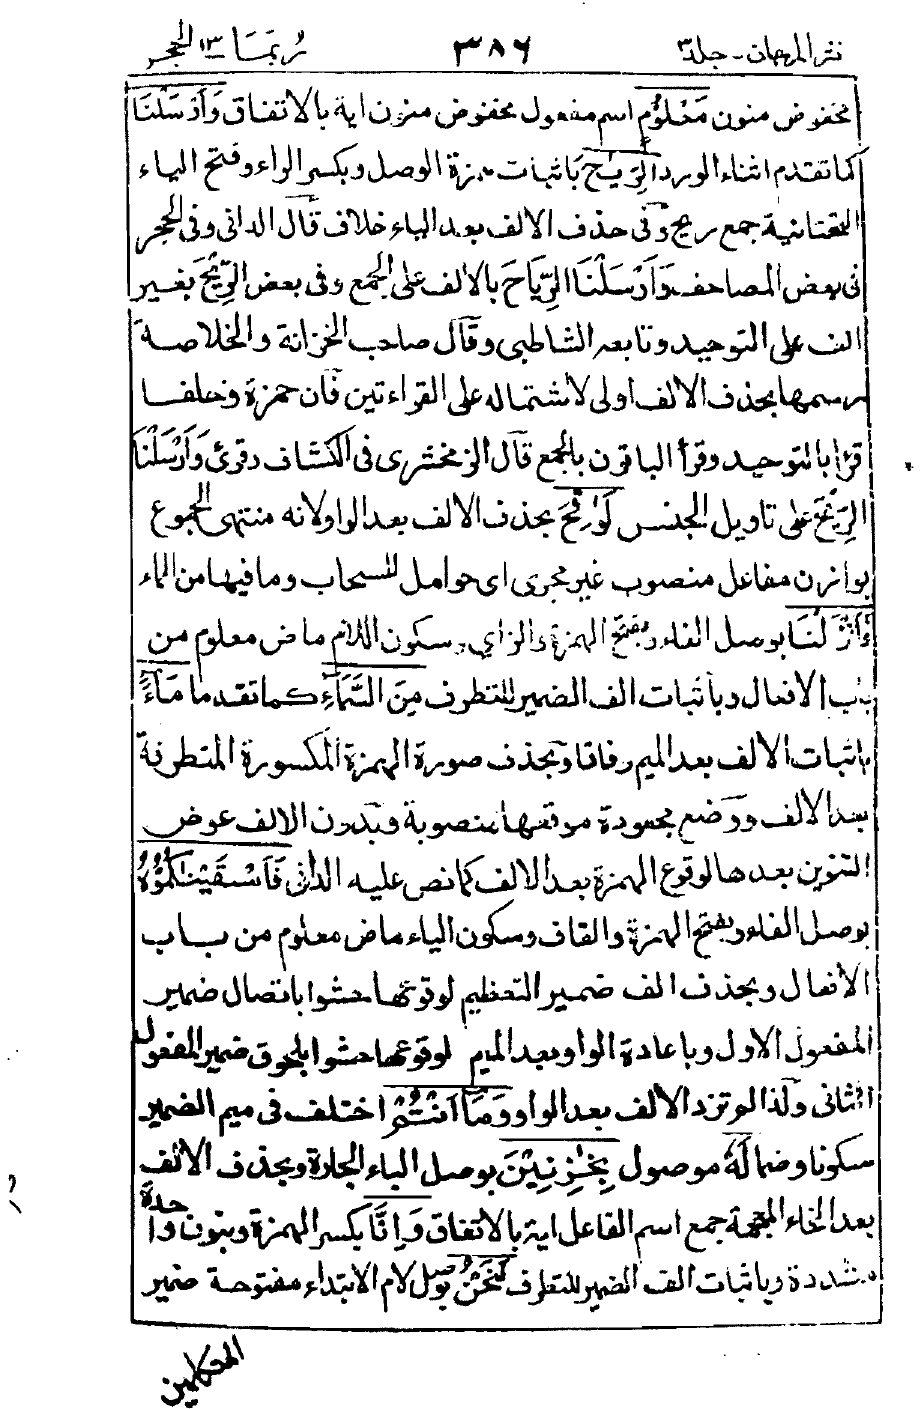 نثر المرجان - جلد ٣ ٣٨٦ ربما ١٣ الحجر
مخفوض منون مَعْلُوْمٍ اسم مفعول مخفوض منون اية بالاتفاق وَأَرْسَلْنَا
كما تقدم اثناء الورد الرِّيٰحَ باثبات همزة الوصل وبكسر الراء وفتح الياء
التحتانية جمع ريح وفى حذف الالف بعد الياء خلاف قال الدانى وفى الحجر
فى بعض المصاحف وَأَرْسَلْنَا الرِّيَاحَ بالالف على الجمع وفى بعض الرِّيْحَ بغير
الف على التوحيد وتابعه الشاطبى وقال صاحب الخزانة والخلاصة
رسمها بحذف الالف اولى لاشتماله على القراءتين فان حمزة وخلفا
قرا بالتوحيد وقرأ الباقون بالجمع قال الزمخشرى فى الكشاف وقرئ وَأَرْسَلْنَا
الرِّيْحَ على تاويل الجنس لَوَاقِحَ بحذف الالف بعد الواو لانه منتهى الجموع
يوازن مفاعل منصوب غير مجرى اى حوامل للسحاب وما فيها من الماء
فَأَنْزَلْنَا بوصل الفاء وبفتح الهمزة والزاي وسكون اللام ماض معلوم من
باب الافعال وباثبات الف الضمير للتطرف مِنَ السَّمَآءِ كما تقدم مَآءً
باثبات الالف بعد الميم وفاقا وبحذف صورة الهمزة المكسورة المتطرفة
بعد الالف ووضع مجعودة موقعها منصوبة وبدون الالف عوض
التنوين بعدها لوقوع الهمزة بعد الالف كما نص عليه الدانى فَأَسْقَيْنٰكُمُوْهُ
بوصل الفاء وبفتح الهمزة والقاف وسكون الياء ماض معلوم من باب
الافعال وبحذف الف ضمير التعظيم لوقوعها حشوا باتصال ضمير
المفعول الاول وباعادة الواو بعد الميم لوقوعها حشوا بلحوق ضمير المفعول
الثانى ولذا لم تزد الالف بعد الواو وَمَآ أَنْتُمْ اختلف فى ميم الضمير
سكونا وضما لَهُ موصول بِخٰزِنِيْنَ بوصل الباء الجارة وبحذف الالف
بعد الخاء المعجمة جمع اسم الفاعل اية بالاتفاق وَإِنَّا بكسر الهمزة وبنون واحدة
مشددة وباثبات الف الضمير للتطرف لَنَحْنُ بوصل لام الابتداء مفتوحة ضمير
المتكلمين